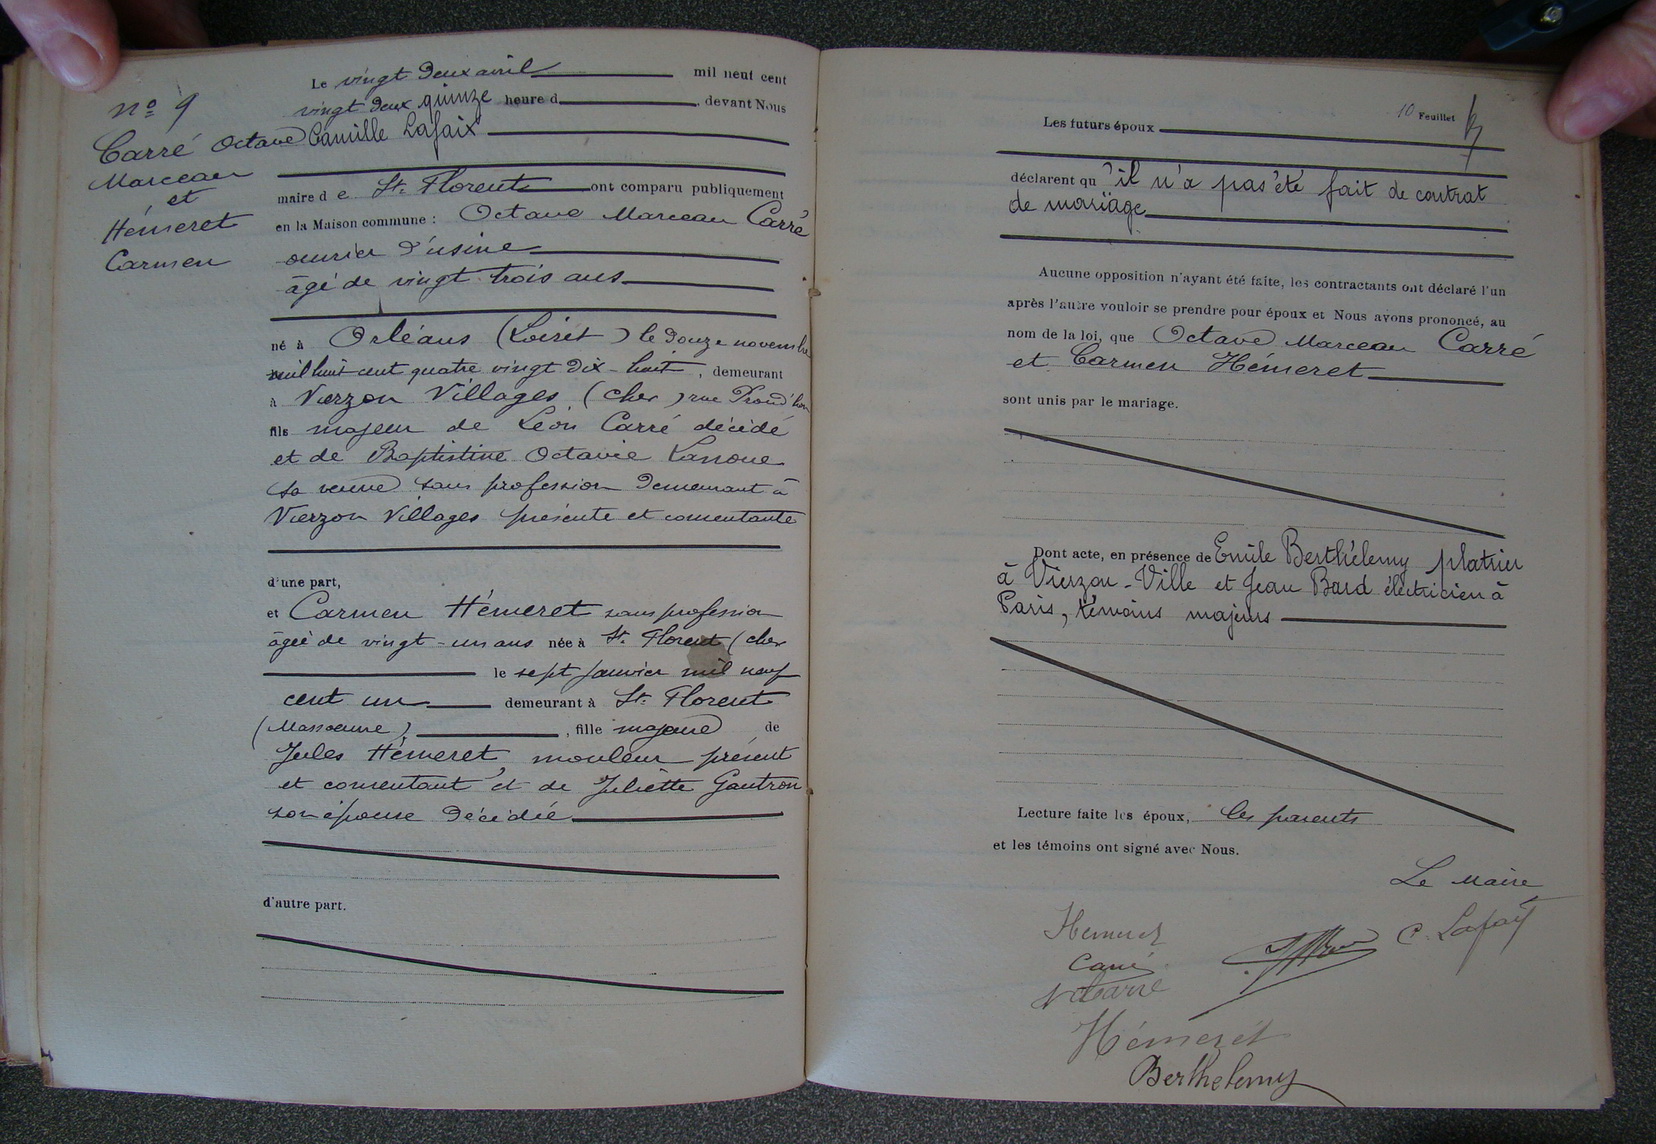 nº 9
Carré Octave
Marceau
et
Hémeret
Carmen
Le vingt deux avril mil neuf cent
vingt deux quinze heure d , devant Nous
Camille Lafaix
maire d e St. Florent ont comparu publiquement
en la Maison commune : Octave Marceau Carré
ouvrier d'usine
âgé de vingt trois ans
né à Orléans (Loiret) le douze novembre
mil huit cent quatre vingt dix-huit , demeurant
à Vierzon Villages (cher) rue Proud'hon
fils majeur de Léon Carré décédé
et de Baptistine Octavie Lanoue
sa veuve sans profession demeurant à
Vierzon Villages présente et consentante
d'une part,
et Carmen Hémeret sans profession
âgée de vingt-un ans née à St. Florent (cher
le sept janvier mil neuf
cent un demeurant à St. Florent
(Massoeuvre) , fille majeure de
Jules Hémeret, mouleur présent
et consentant et de Juliette Gautron
son épouse décédée
d'autre part.
10 Feuillet
Les futurs époux
déclarent qu 'il n'a pas été fait de contrat
de mariage
Aucune opposition n'ayant été faite, les contractants ont déclaré l'un
après l'autre vouloir se prendre pour époux et Nous avons prononcé, au
nom de la loi, que Octave Marceau Carré
et Carmen Hémeret
sont unis par le mariage.
Dont acte, en présence de Emile Berthélemy platrier
à Vierzon-Ville et Jean Bard électricien à
Paris, témoins majeurs
Lecture faite les époux, les parents
et les témoins ont signé avec Nous.
Le Maire
C. Lafaix
Hemeret
Carré
Carré
Hémeret
Berthelemy